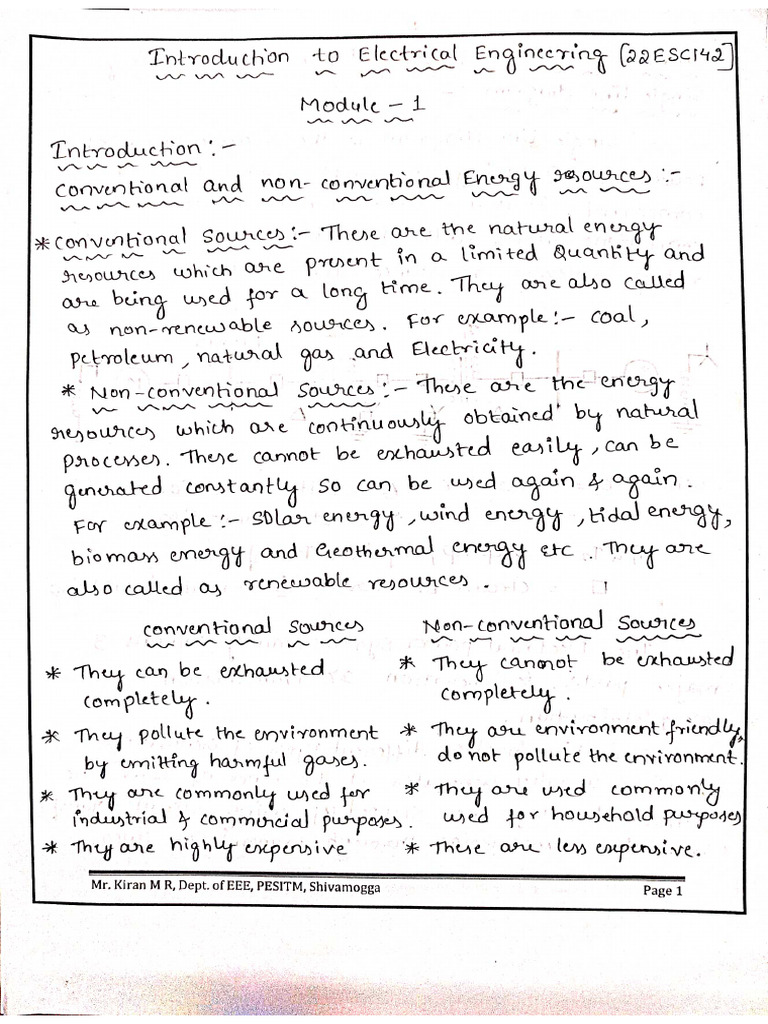 Introduction to Electrical Engineering [22ESC142]
Module - 1
Introduction :-
conventional and non-conventional Energy resources :-
* conventional sources :- These are the natural energy
resources which are present in a limited Quantity and
are being used for a long time. They are also called
as non-renewable sources. For example :- coal,
petroleum, natural gas and Electricity.
* Non-conventional Sources :- These are the energy
resources which are continuously obtained by natural
processes. These cannot be exhausted easily, can be
generated constantly so can be used again & again.
For example :- Solar energy, wind energy, tidal energy,
biomass energy and Geothermal energy etc. They are
also called as renewable resources.
conventional sources Non-conventional Sources
* They can be exhausted * They cannot be exhausted
completely. completely.
* They pollute the environment * They are environment friendly,
by emitting harmful gases. do not pollute the environment.
* They are commonly used for * They are used commonly
industrial & commercial purposes. used for household purposes
* They are highly expensive * These are less expensive.
Mr. Kiran M R, Dept. of EEE, PESITM, Shivamogga Page 1